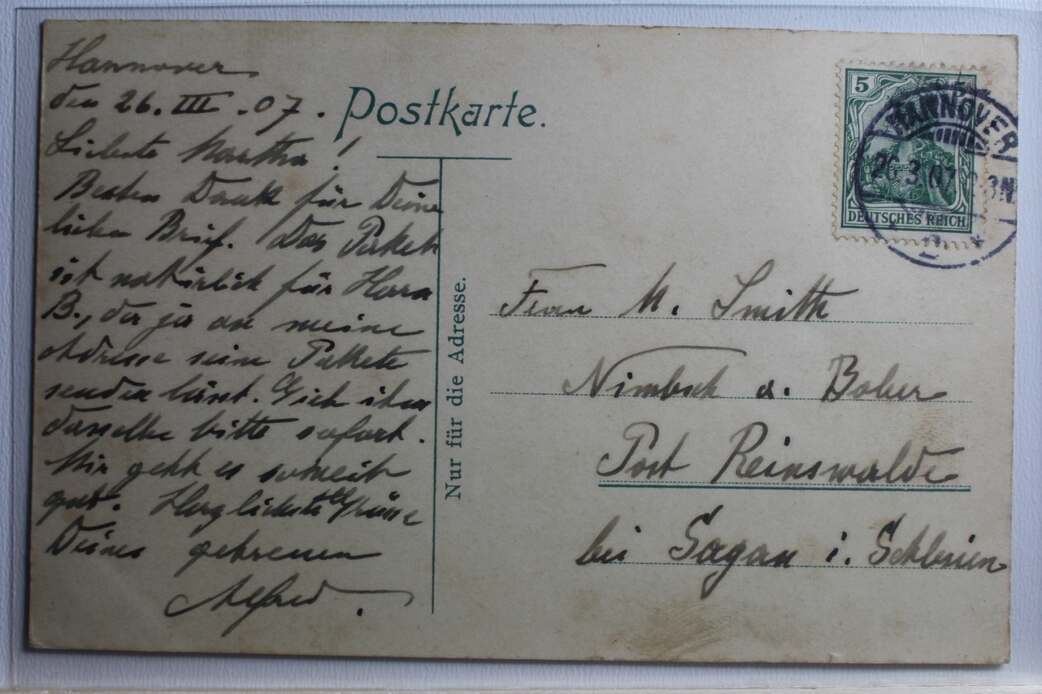 Hannover
den 26. III. 07.
Liebste Martha!
Besten Dank für Deinen
lieben Brief. Das Paket
ist natürlich für Herrn
B., der ja an meine
Adresse seine Pakete
senden lässt. Gieb ihm
dasselbe bitte sofort.
Mir geht es soweit
gut. Herzlichste Grüsse
Deines getreuen
Alfred.
Postkarte.
Nur für die Adresse.
5
DEUTSCHES REICH
HANNOVER
26.3.07
Frau M. Smith
Nimbsch a. Bober
Post Reinswalde
bei Sagan i. Schlesien